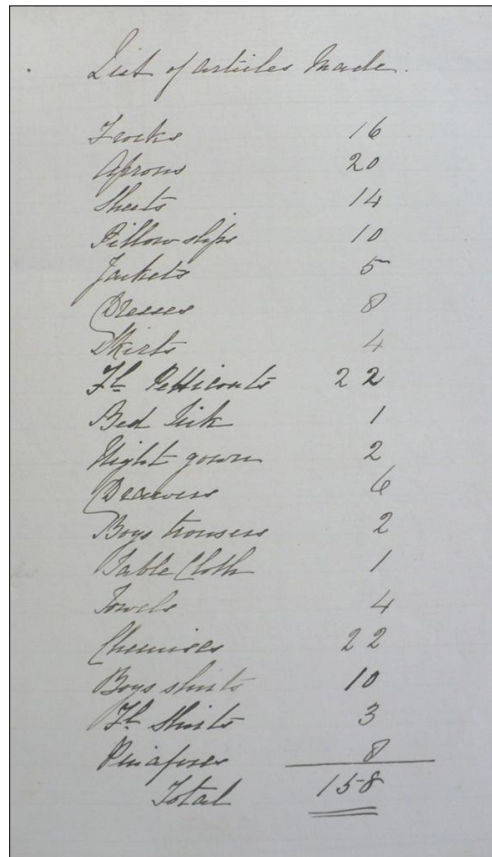 List of articles Made.
Frocks 16
Aprons 20
Sheets 14
Pillow slips 10
Jackets 5
Dresses 8
Skirts 4
Fl Petticoats 22
Bed Tick 1
Night gown 2
Drawers 6
Boys trousers 2
Table Cloth 1
Towels 4
Chemises 22
Boys shirts 10
Fl Shirts 3
Pinafores 8
Total 158